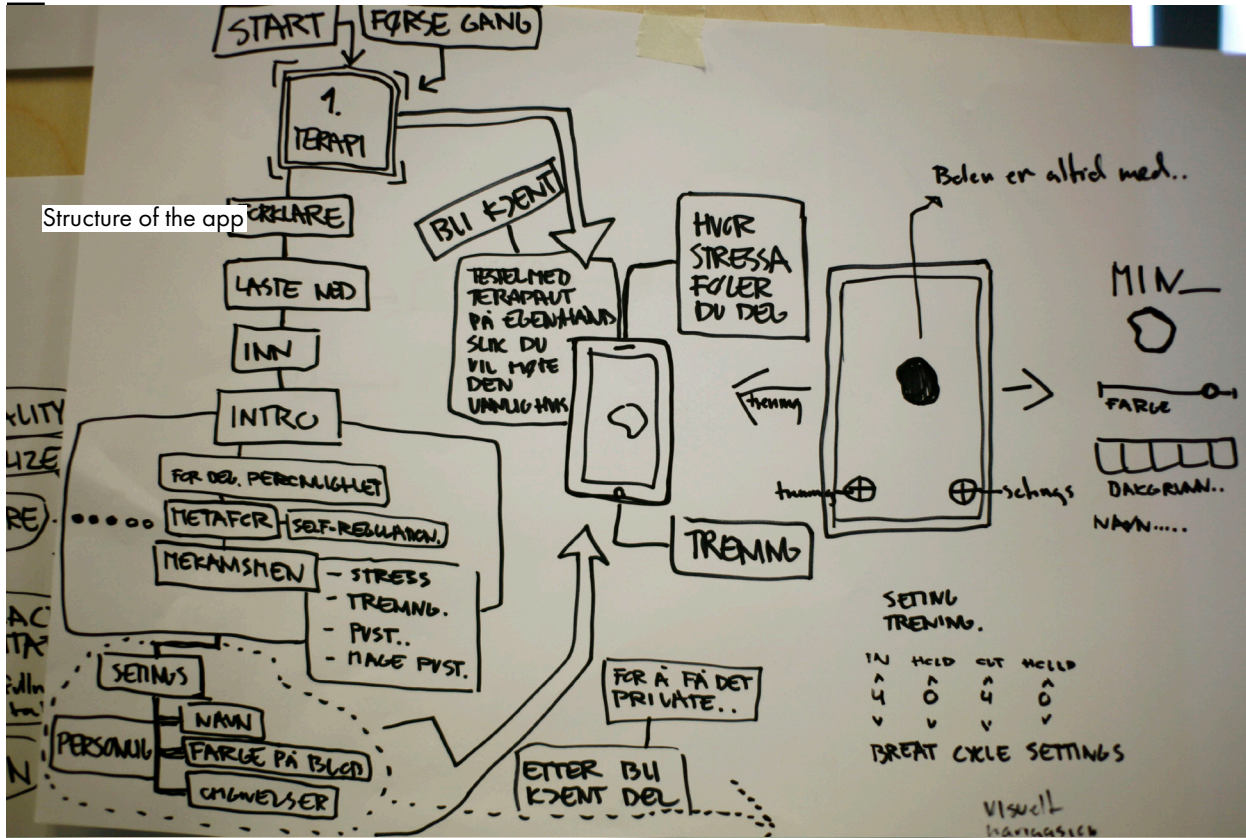 START
FØRSE GANG
1.
TERAPI
Structure of the app
LASTE NED
INN
INTRO
FOR DEG. PERSONLIGHET
METAFOR
SELF-REGULATION.
MEKANISMEN
- STRESS
- TRENING.
- PUST..
- MAGE PUST.
SETINGS
PERSONLIG
NAVN
FARGE PÅ BLOB
OMGIVELSER
BLI KJENT
TERAPAUT
PÅ EGENHÅND
SLIK DU
VIL MØTE
DEN
HVOR
STRESSA
FØLER
DU DEG
TRENING
FOR Å FÅ DET
PRIVATE..
ETTER BLI
KJENT DEL
er altid med..
trening
setings
MIN__
FARGE
NAVN.....
SETING
TRENING.
IN HOLD OUT HOLD
4 0 4 0
BREAT CYCLE SETTINGS
VISUELT
ALITY
LIZE